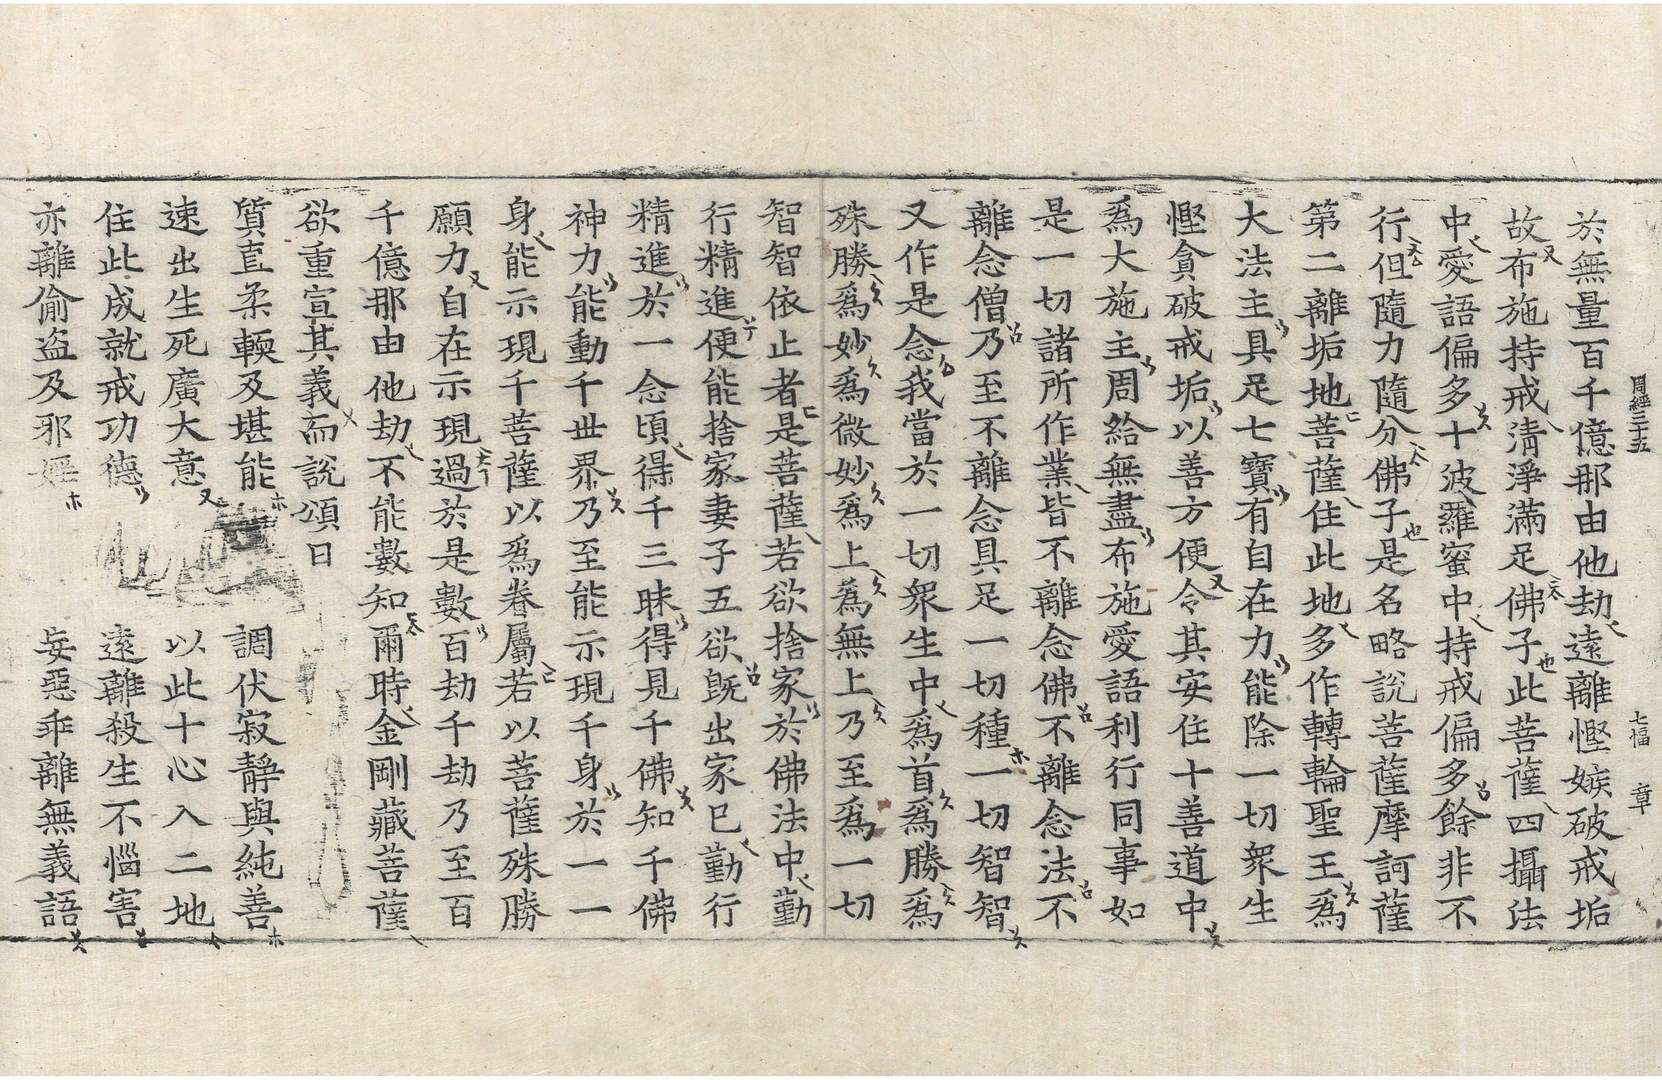 周經三十五 七福 章
於無量百千億那由他劫遠離慳嫉破戒垢
故布施持戒清淨滿足佛子此菩薩四攝法
中愛語偏多十波羅蜜中持戒偏多餘非不
行但隨力隨分佛子是名略說菩薩摩訶薩
第二離垢地菩薩住此地多作轉輪聖王爲
大法主具足七寶有自在力能除一切衆生
慳貪破戒垢以善方便令其安住十善道中
爲大施主周給無盡布施愛語利行同事如
是一切諸所作業皆不離念佛不離念法不
離念僧乃至不離念具足一切種一切智智
又作是念我當於一切衆生中爲首爲勝爲
殊勝爲妙爲微妙爲上爲無上乃至爲一切
智智依止者是菩薩若欲捨家於佛法中勤
行精進便能捨家妻子五欲旣出家已勤行
精進於一念頃得千三昧得見千佛知千佛
神力能動千世界乃至能示現千身於一一
身能示現千菩薩以爲眷屬若以菩薩殊勝
願力自在示現過於是數百劫千劫乃至百
千億那由他劫不能數知爾時金剛藏菩薩
欲重宣其義而說頌曰
質直柔輭及堪能 調伏寂靜與純善
速出生死廣大意 以此十心入二地
住此成就戒功德 遠離殺生不惱害
亦離偷盜及邪婬 妄惡乖離無義語